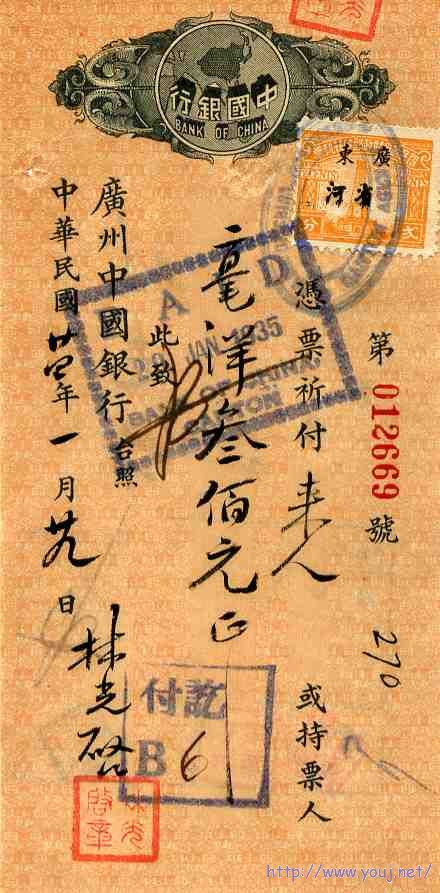 中國銀行
BANK OF CHINA
廣東
省河
貳分
第 012669 號
270
憑票祈付来人或持票人
毫洋叁佰元正
此致
廣州中國銀行台照
中華民國廿四年一月廿九日
林光啓
PAID
29 JAN 1935
BANK OF CHINA
CANTON
付訖
B 6
http://www.youj.net/